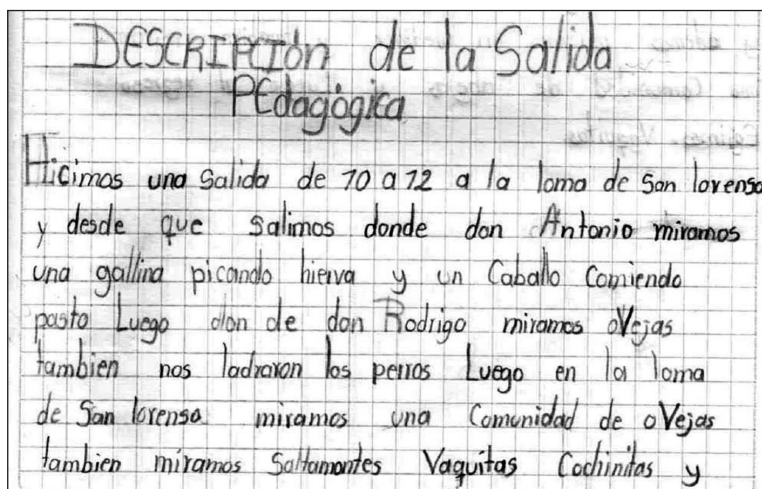 DESCRIPCIón de la Salida
PEdagógica
Hicimos una Salida de 10 a 12 a la loma de San lorenso
y desde que Salimos donde don Antonio miramos
una gallina picando hierva y un Caballo Comiendo
pasto Luego don de don Rodrigo miramos oVejas
tambien nos ladraron los perros Luego en la loma
de San lorenso miramos una Comunidad de oVejas
tambien miramos Saltamontes Vaquitas Cochinitas y